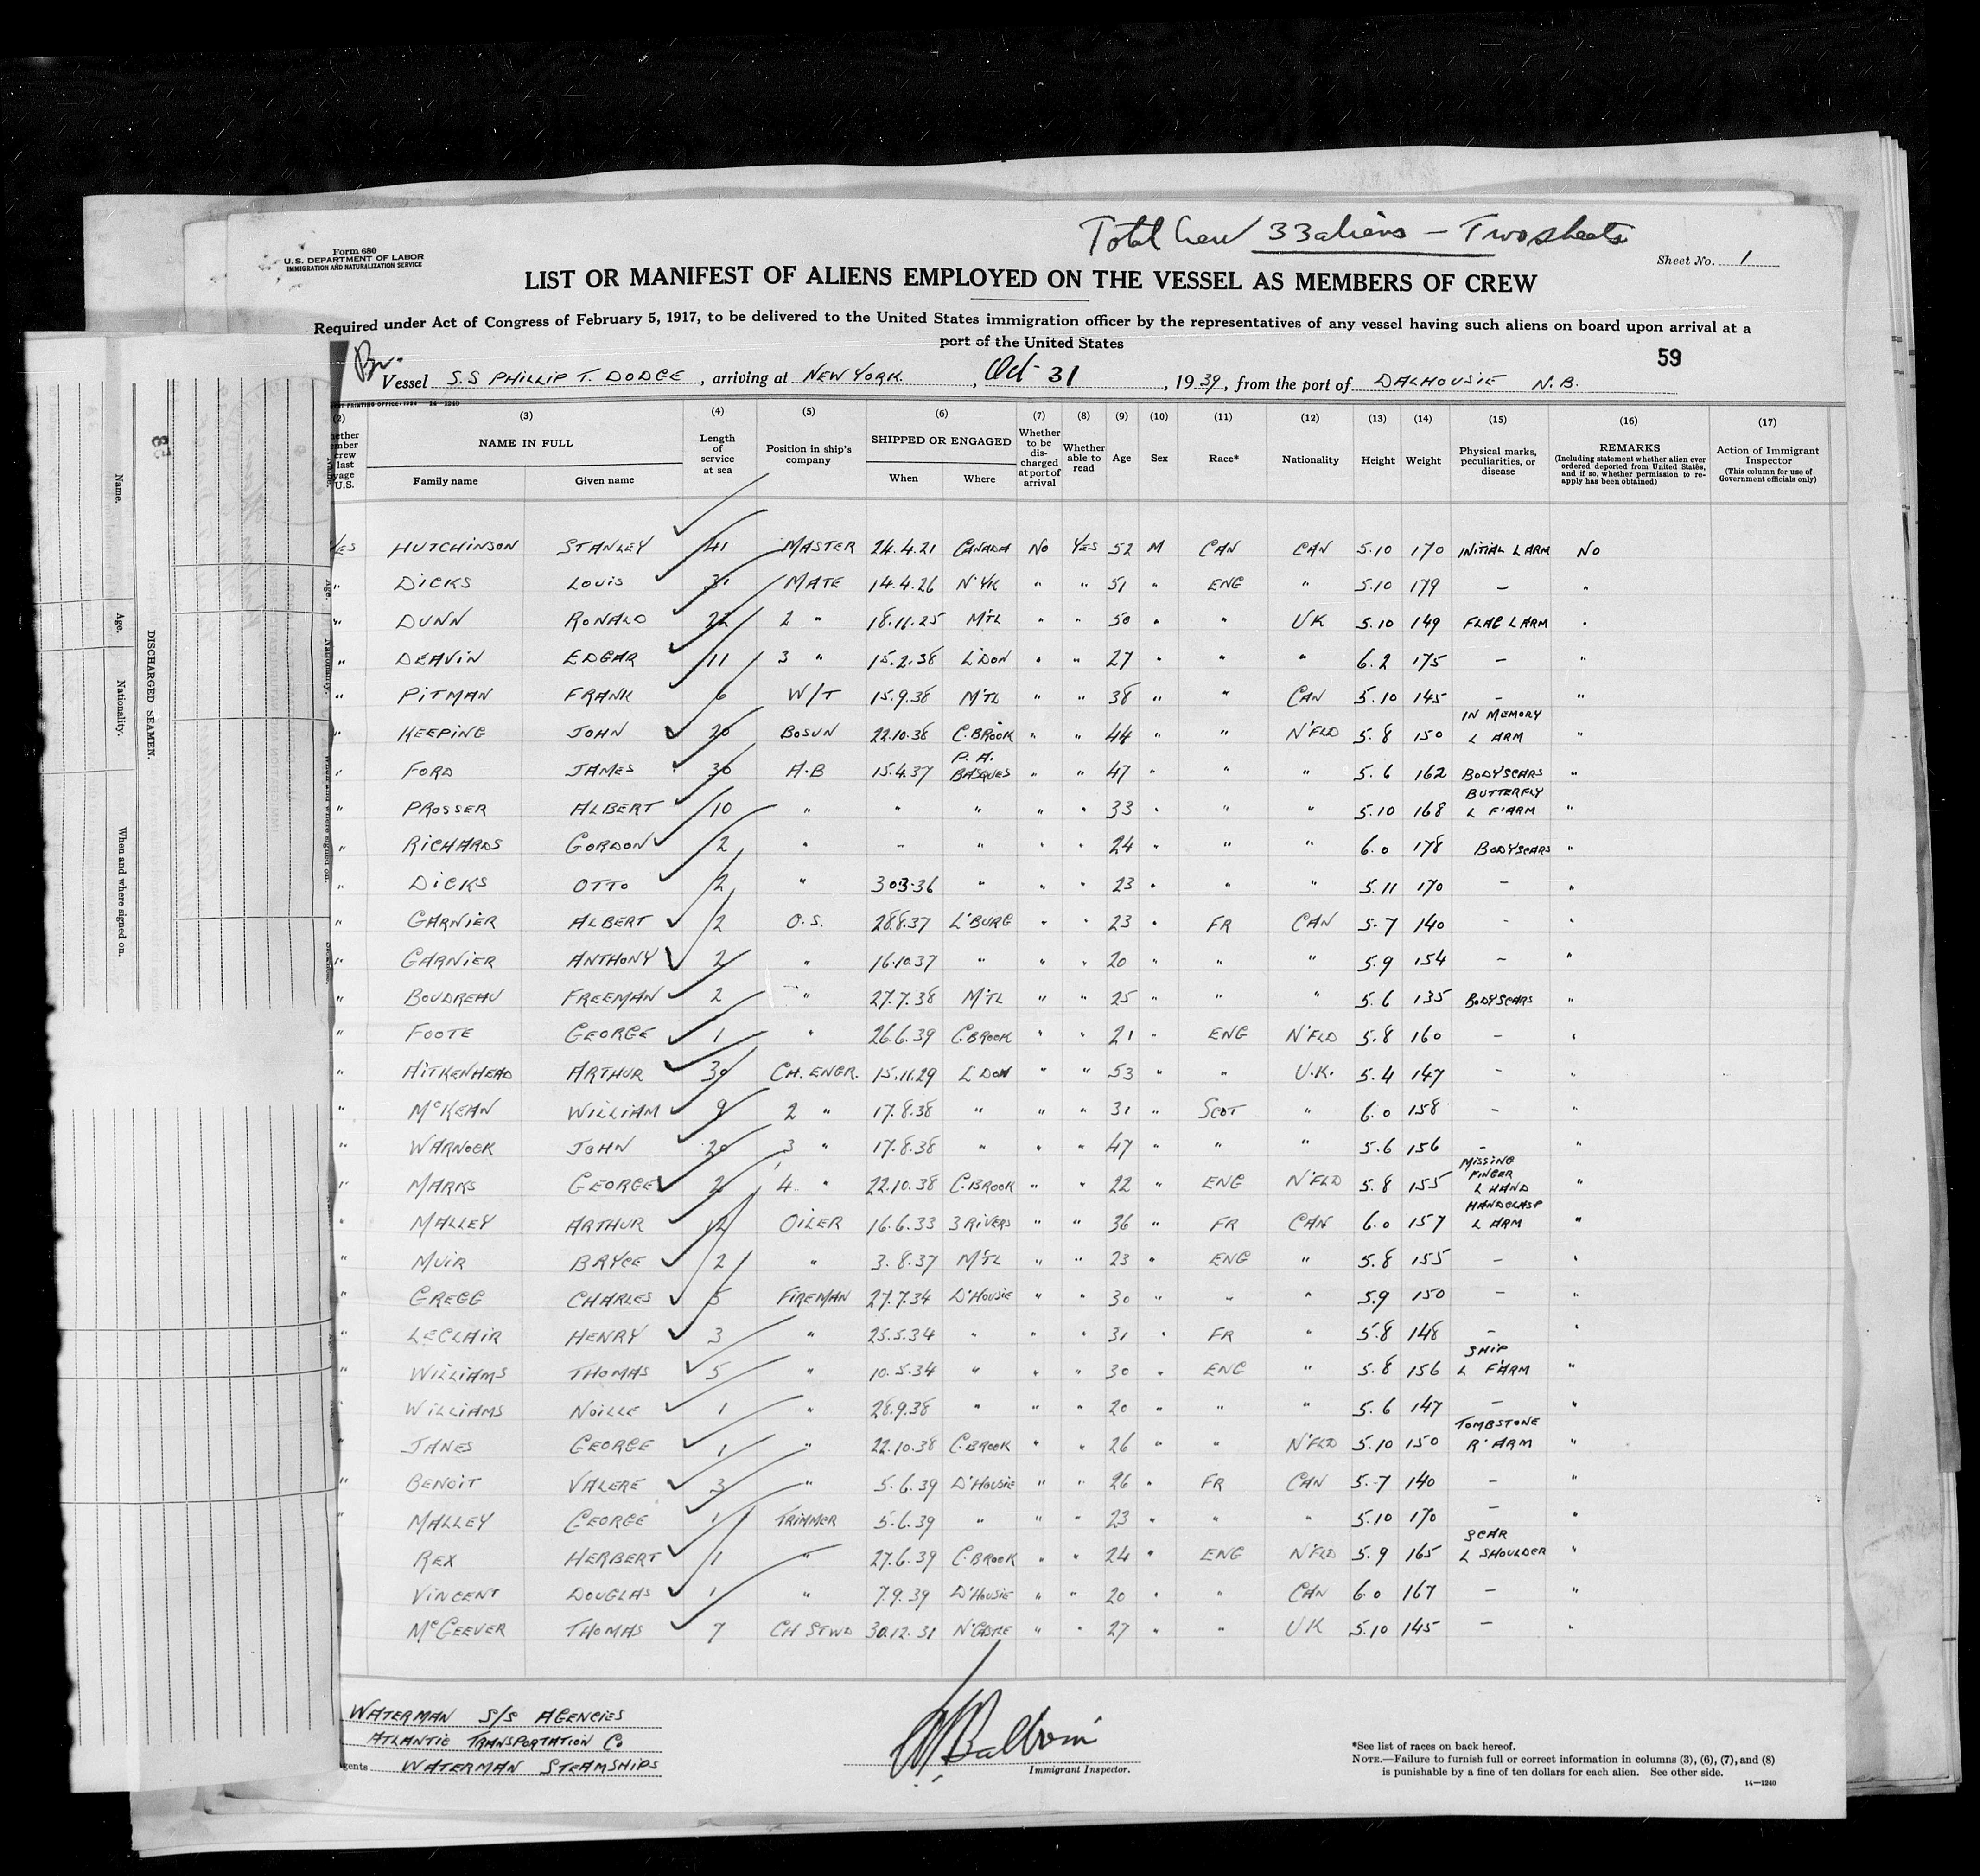 Total Crew 33 aliens — Two sheets
Form 680
U.S. DEPARTMENT OF LABOR
IMMIGRATION AND NATURALIZATION SERVICE
Sheet No. 1
LIST OR MANIFEST OF ALIENS EMPLOYED ON THE VESSEL AS MEMBERS OF CREW
Required under Act of Congress of February 5, 1917, to be delivered to the United States immigration officer by the representatives of any vessel having such aliens on board upon arrival at a
port of the United States
59
Br.
Vessel S.S PHILLIP T. DODGE, arriving at NEW YORK, Oct 31, 1939, from the port of DALHOUSIE N.B.
(2) (3) (4) (5) (6) (7) (8) (9) (10) (11) (12) (13) (14) (15) (16) (17)
NAME IN FULL
Family name Given name
Length of service at sea
Position in ship's company
SHIPPED OR ENGAGED
When Where
Whether to be discharged at port of arrival
Whether able to read
Age Sex Race* Nationality Height Weight
Physical marks, peculiarities, or disease
REMARKS
(Including statement whether alien ever ordered deported from United States, and if so, whether permission to reapply has been obtained)
Action of Immigrant Inspector
(This column for use of Government officials only)
YES HUTCHINSON STANLEY 41 MASTER 24.4.21 CANADA NO YES 52 M CAN CAN 5.10 170 INITIAL L ARM NO
" DICKS LOUIS 31 MATE 14.4.26 N'YK " " 51 " ENG " 5.10 179 — "
" DUNN RONALD 22 2 " 18.11.25 M'TL " " 50 " " UK 5.10 149 FLAG L ARM "
" DEAVIN EDGAR 11 3 " 15.2.38 L'DON " " 27 " " " 6.2 175 — "
" PITMAN FRANK 6 W/T 15.9.38 M'TL " " 38 " " CAN 5.10 145 — "
" KEEPING JOHN 20 BOSUN 22.10.38 C.BROOK " " 44 " " N'FLD 5.8 150 IN MEMORY L ARM "
" FORD JAMES 30 A.B 15.4.37 P.A. BASQUES " " 47 " " " 5.6 162 BODYSCARS "
" PROSSER ALBERT 10 " " " " " 33 " " " 5.10 168 BUTTERFLY L F'ARM "
" RICHARDS GORDON 2 " " " " " 24 " " " 6.0 178 BODYSCARS "
" DICKS OTTO 2 " 30.3.36 " " " 23 " " " 5.11 170 — "
" GARNIER ALBERT 2 O.S. 28.8.37 L'BURG " " 23 " FR CAN 5.7 140 — "
" GARNIER ANTHONY 2 " 16.10.37 " " " 20 " " " 5.9 154 — "
" BOUDREAU FREEMAN 2 " 27.7.38 M'TL " " 25 " " " 5.6 135 BODYSCARS "
" FOOTE GEORGE 1 " 26.6.39 C.BROOK " " 21 " ENG N'FLD 5.8 160 — "
" AITKENHEAD ARTHUR 30 CH. ENGR. 15.11.29 L'DON " " 53 " " U.K. 5.4 147 — "
" McKEAN WILLIAM 9 2 " 17.8.38 " " " 31 " SCOT " 6.0 158 — "
" WARNOCK JOHN 20 3 " 17.8.38 " " " 47 " " " 5.6 156 — "
" MARKS GEORGE 2 4 " 22.10.38 C.BROOK " " 22 " ENG N'FLD 5.8 155 MISSING FINGER L HAND "
" MALLEY ARTHUR 12 OILER 16.6.33 3 RIVERS " " 36 " FR CAN 6.0 157 HANDCLASP L ARM "
" MUIR BRYCE 2 " 3.8.37 M'TL " " 23 " ENG " 5.8 155 — "
" GREGG CHARLES 5 FIREMAN 27.7.34 D'HOUSIE " " 30 " " " 5.9 150 — "
" LECLAIR HENRY 3 " 25.5.34 " " " 31 " FR " 5.8 148 — "
" WILLIAMS THOMAS 5 " 10.5.34 " " " 30 " ENG " 5.8 156 SHIP L F'ARM "
" WILLIAMS NOILLE 1 " 28.9.38 " " " 20 " " " 5.6 147 — "
" JANES GEORGE 1 " 22.10.38 C.BROOK " " 26 " " N'FLD 5.10 150 TOMBSTONE R'ARM "
" BENOIT VALERE 3 " 5.6.39 D'HOUSIE " " 26 " FR CAN 5.7 140 — "
" MALLEY GEORGE 1 TRIMMER 5.6.39 " " " 23 " " " 5.10 170 — "
REX HERBERT 1 " 27.6.39 C.BROOK " " 24 " ENG N'FLD 5.9 165 SCAR L SHOULDER "
VINCENT DOUGLAS 1 " 7.9.39 D'HOUSIE " " 20 " " CAN 6.0 167 — "
McGEEVER THOMAS 7 CH STWD 30.12.31 N'CASTLE " " 27 " " UK 5.10 145 — "
WATERMAN S/S AGENCIES
ATLANTIC TRANSPORTATION Co
WATERMAN STEAMSHIPS
Baldwin
Immigrant Inspector.
*See list of races on back hereof.
NOTE.—Failure to furnish full or correct information in columns (3), (6), (7), and (8)
is punishable by a fine of ten dollars for each alien. See other side.
14—1240
DISCHARGED SEAMEN.
Name. Age. Nationality. When and where signed on.